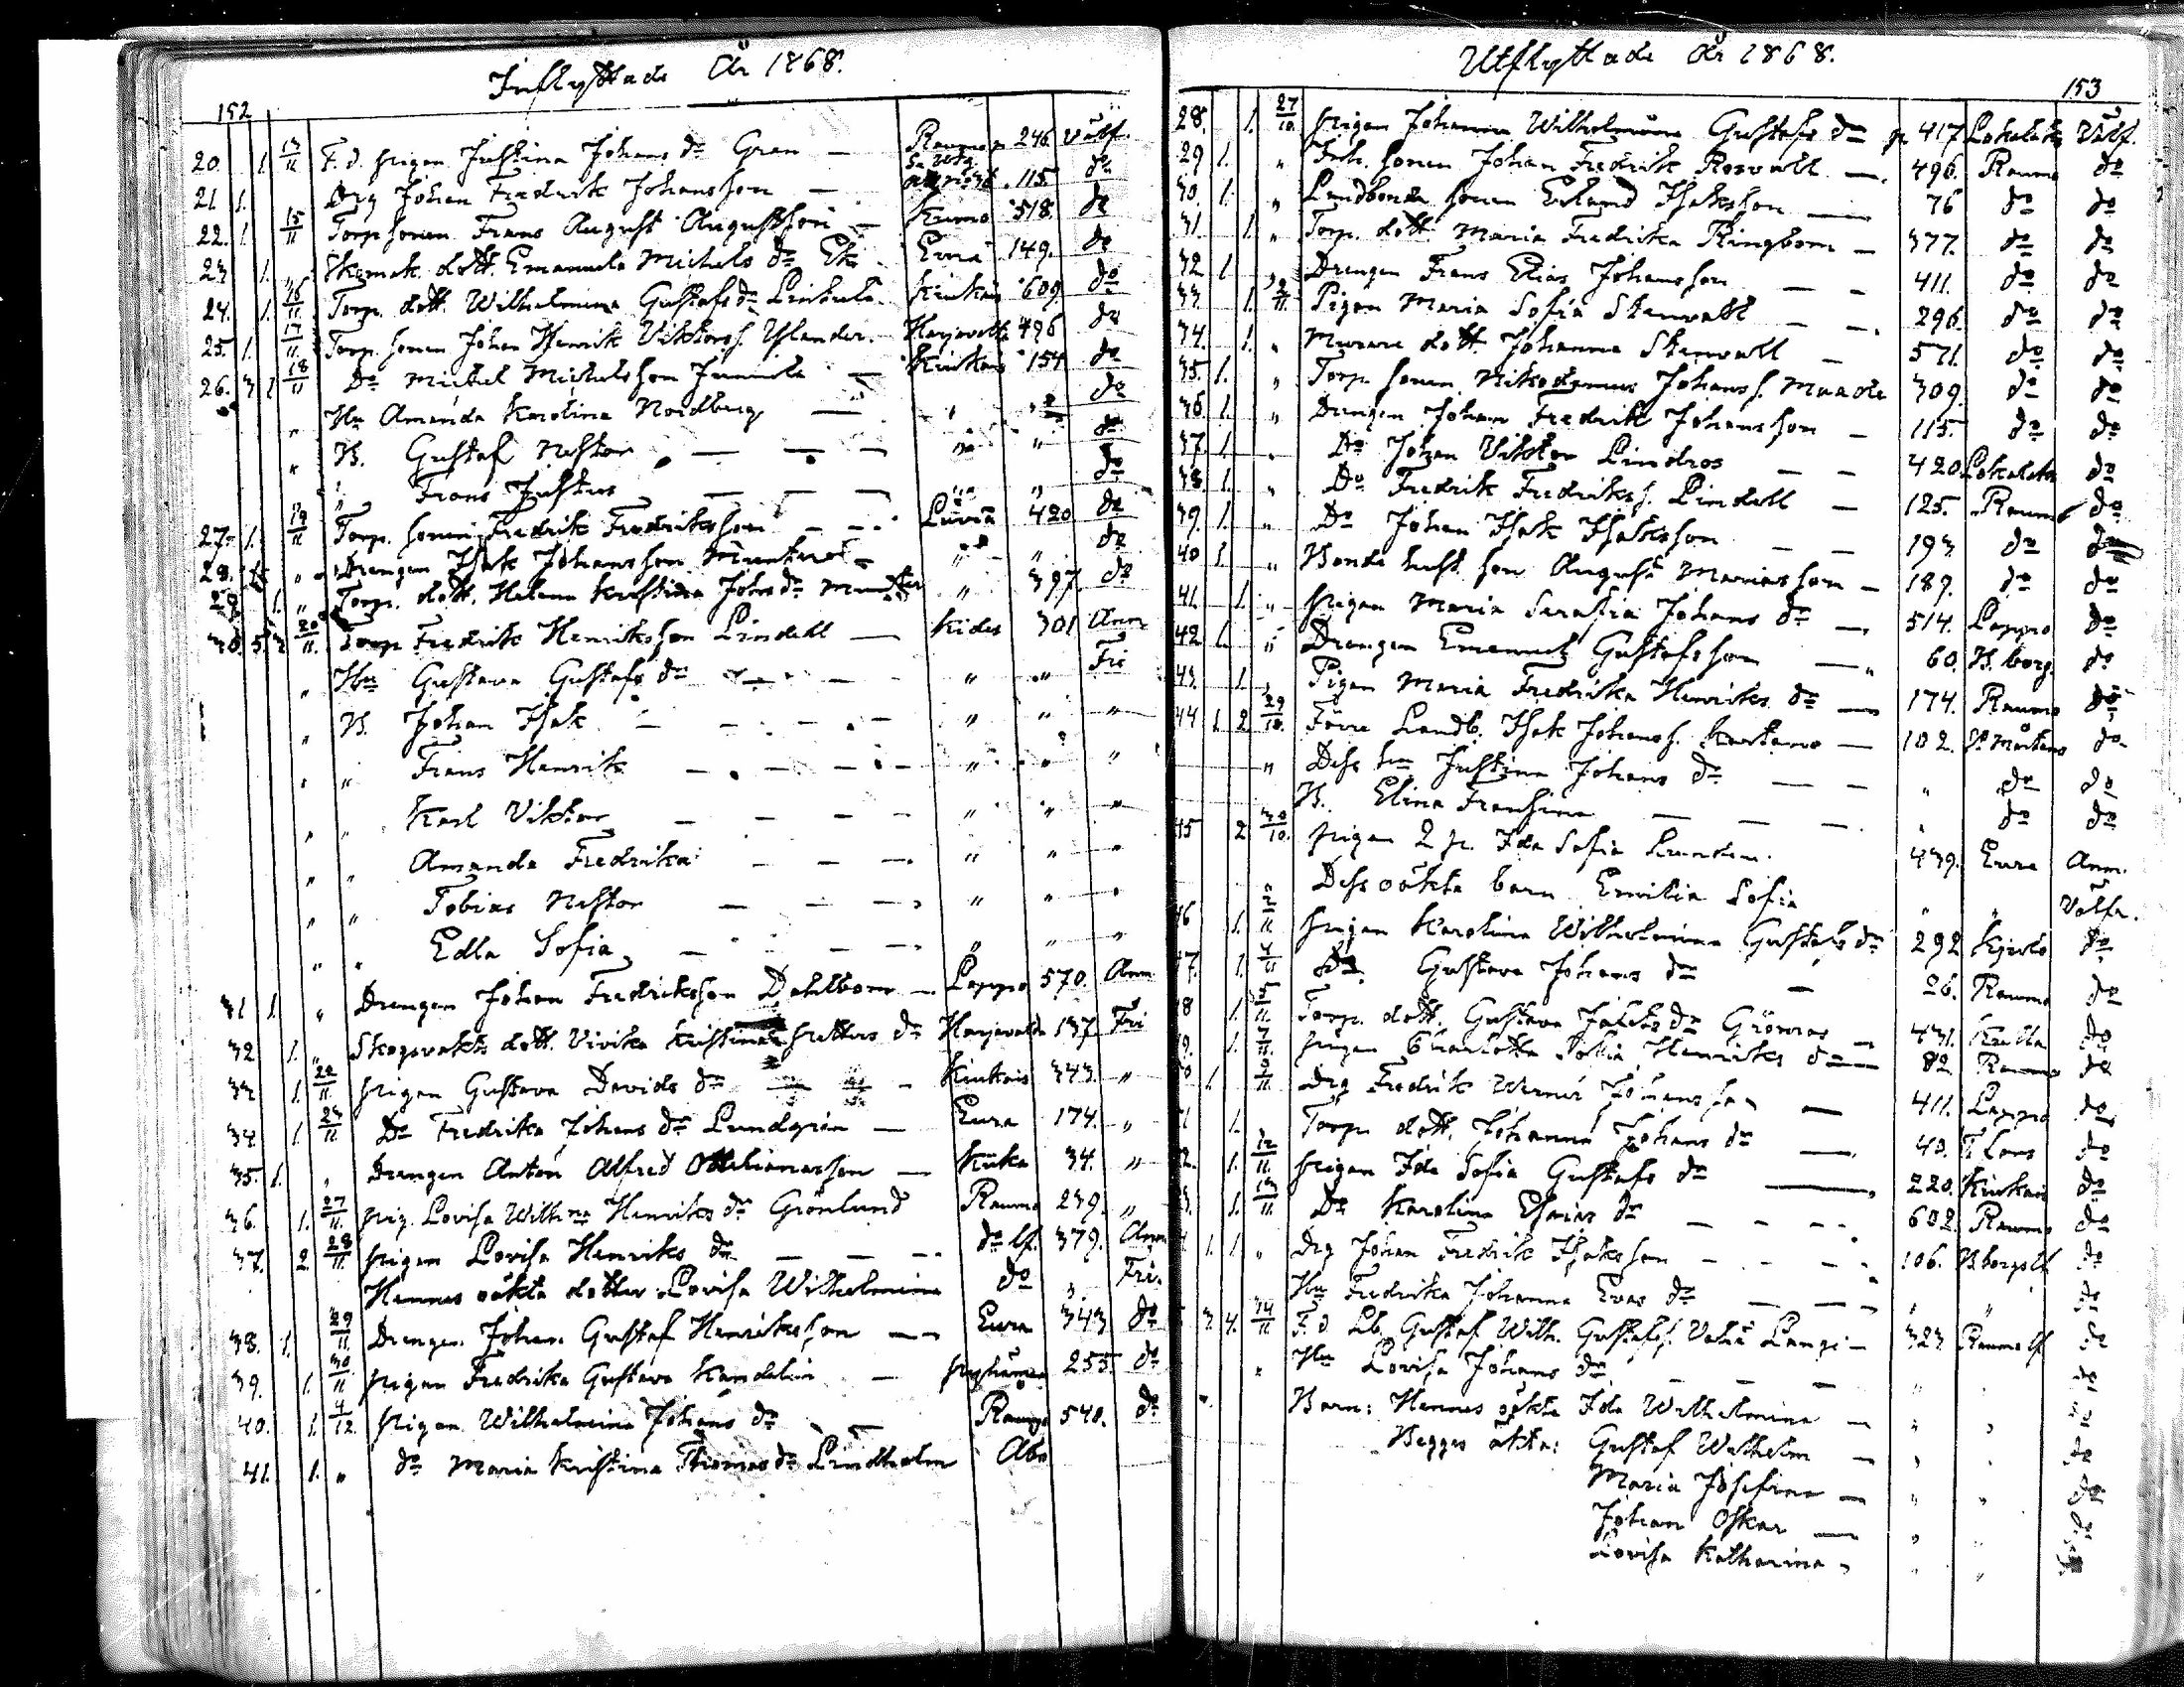 Inflyttade År 1868.
152
20. 1. 13/11 F. d. pigan Justina Johans dr Gren — Raumo p. 246 Välf.
21 1. Drg Johan Fredrik Johansson — 115. do
22. 1. 15/11 Torp. sonen Frans August Augustsson — Kumo 518. do
23 1. " Skomak. dott. Emanuela Michels dr Ek Eura 149. do
24. 1. 16/11 Torp. dott. Wilhelmina Gustafs dr Kiukais 609 do
25. 1. 17/11 Torp. sonen Johan Henrik Viktorss. Harjavalta 496 do
26. 3 1 18/11 Do Michel Michelsson Junnila — Kiukais 154 do
" Hu Amanda Karolina Nordberg — " " do
" B. Gustaf Nestor — — " " do
" Frans Justus — — — " " do
27. 1. 19/11 Torp. sonen Fredrik Fredriksson — — Luvia 420 do
28. " Drengen Isak Johansson — " " do
29 1. " Torp. dott. Helena Kristina Johs dr " 397. do
30. 5 3 20/11. Torp. Fredrik Henriksson Lindell — Kides 301 Anm
" Hu Gustava Gustafs dr — — " " Fri
" B. Johan Isak — — — " " "
" " Frans Henrik — — — " " "
" " Karl Viktor — — — " " "
" " Amanda Fredrika — — — " " "
" " Tobias Nestor — — — " " "
" " Edla Sofia — — — " " "
31 1. " Drengen Johan Fredriksson Dahlbom — Lappo 570. Anm
32 1. " Skogvakts dott. Vivika Kristina Petters dr Harjavalta 137. Fri
33 1. 22/11 pigan Gustava Davids dr — Kiukais 343. "
34. 1. 23/11 Do Fredrika Johans dr Lundgren — Eura 174. "
35. 1. " Drengen Anton Alfred — 34. "
36. 1. 27/11. pig. Lovisa Wilhna Henriks dr Grönlund Raumo 239. "
37. 2. 28/11. pigan Lovisa Henriks dr — — — do lf. 379. Anm
Hennes oäkta dotter Lovisa Wilhelmina do " Fri.
38. 1. 29/11 Drengen Johan Gustaf Henriksson — Eura 343 do
39. 1. 30/11 pigan Fredrika Gustava Kandelin — 255. do
40. 1. 4/12. pigan Wilhelmina Johans dr — Raumo 540. do
41. 1. " do Maria Kristina Thomas dr Lindholm Åbo
Utflyttade År 1868.
153
28. 1. 27/10. pigan Johanna Wilhelmina Gustafs dr p. 417 Lokalaks Välf.
29 1. " Inh. sonen Johan Fredrik Rosvall — 496. Raumo do
30. 1. " Landbonde sonen Erland Isaksson — 76 do do
31. 1. " Torp. dott. Maria Fredrika Ringbom — 377. do do
32 1 " Drengen Frans Elias Johansson — — 411. do do
33. 1. 2/11. Pigan Maria Sofia Stenvall — — 296. do do
34. 1. " Murare dott. Johanna Stenvall — 571. do do
35. 1. " Torp. sonen Nikodemus Johanss. 309. do do
36. 1. " Drengen Johan Fredrik Johansson — 115. do do
37. 1. " Do Johan Viktor Lindros — — 420. Lokalaks do
38. 1. " Do Fredrik Fredrikss. Lindell — 125. Raumo do
39. 1. " Do Johan Isak Isaksson — — 193 do do
40 1. " Bonde son August — 189. do do
41. 1. " pigan Maria Serafia Johans dr — 514. Lappo do
42. 1. " Drengen Emanuel Gustafsson — 60. B.borg. do
43. 1. " Pigan Maria Fredrika Henriks dr — 174. Raumo do
44 1. 2 29/10. Förre Landb. Isak Johanss. — 102. St Mårtens do
" Dess hu Justina Johans dr — — " do do
B. Elina Fransina — — — " do do
45 2 30/10. pigan 2 p. Ida Sofia 439. Eura Anm.
Dess oäkta barn Emilia Sofia " " Välfr.
46 1. 2/11 pigan Karolina Wilhelmina Gustafs dr 292 Kjulo do
47. 1. 4/11 Do Gustava Johans dr — 26. Raumo do
48 1. Torp. dott. Gustava dr Grönroos — 431. do
49. 1. 7/11. pigan Charlotta Sofia Henriks dr — 82 Raumo do
50 1. 9/11 Drg Fredrik Werner Johansson — 411. Lappo do
51 1. Torp. dott. Johanna Johans dr — 40. do
52. 1. 12/11. pigan Ida Sofia Gustafs dr — 220. Kiukais do
53. 1. 13/11 Do Karolina Esaias dr — — — 602. Raumo do
1. 1. " Drg Johan Fredrik Isaksson — — — 106. B.borgs lf do
Hu Fredrika Johanna Evas dr — — — " " do
3. 4. 14/11 F. d. Lb. Gustaf Wilh. Gustafs. Langi — 323 Raumo lf do
" Hu Lovisa Johans dr — — — " " do
Barn: Hennes oäkta Ida Wilhelmina — " " do
Begges äkta: Gustaf Wilhelm — " " do
Maria Josefina — " " do
Johan Oskar — " " do
Lovisa Katharina " "